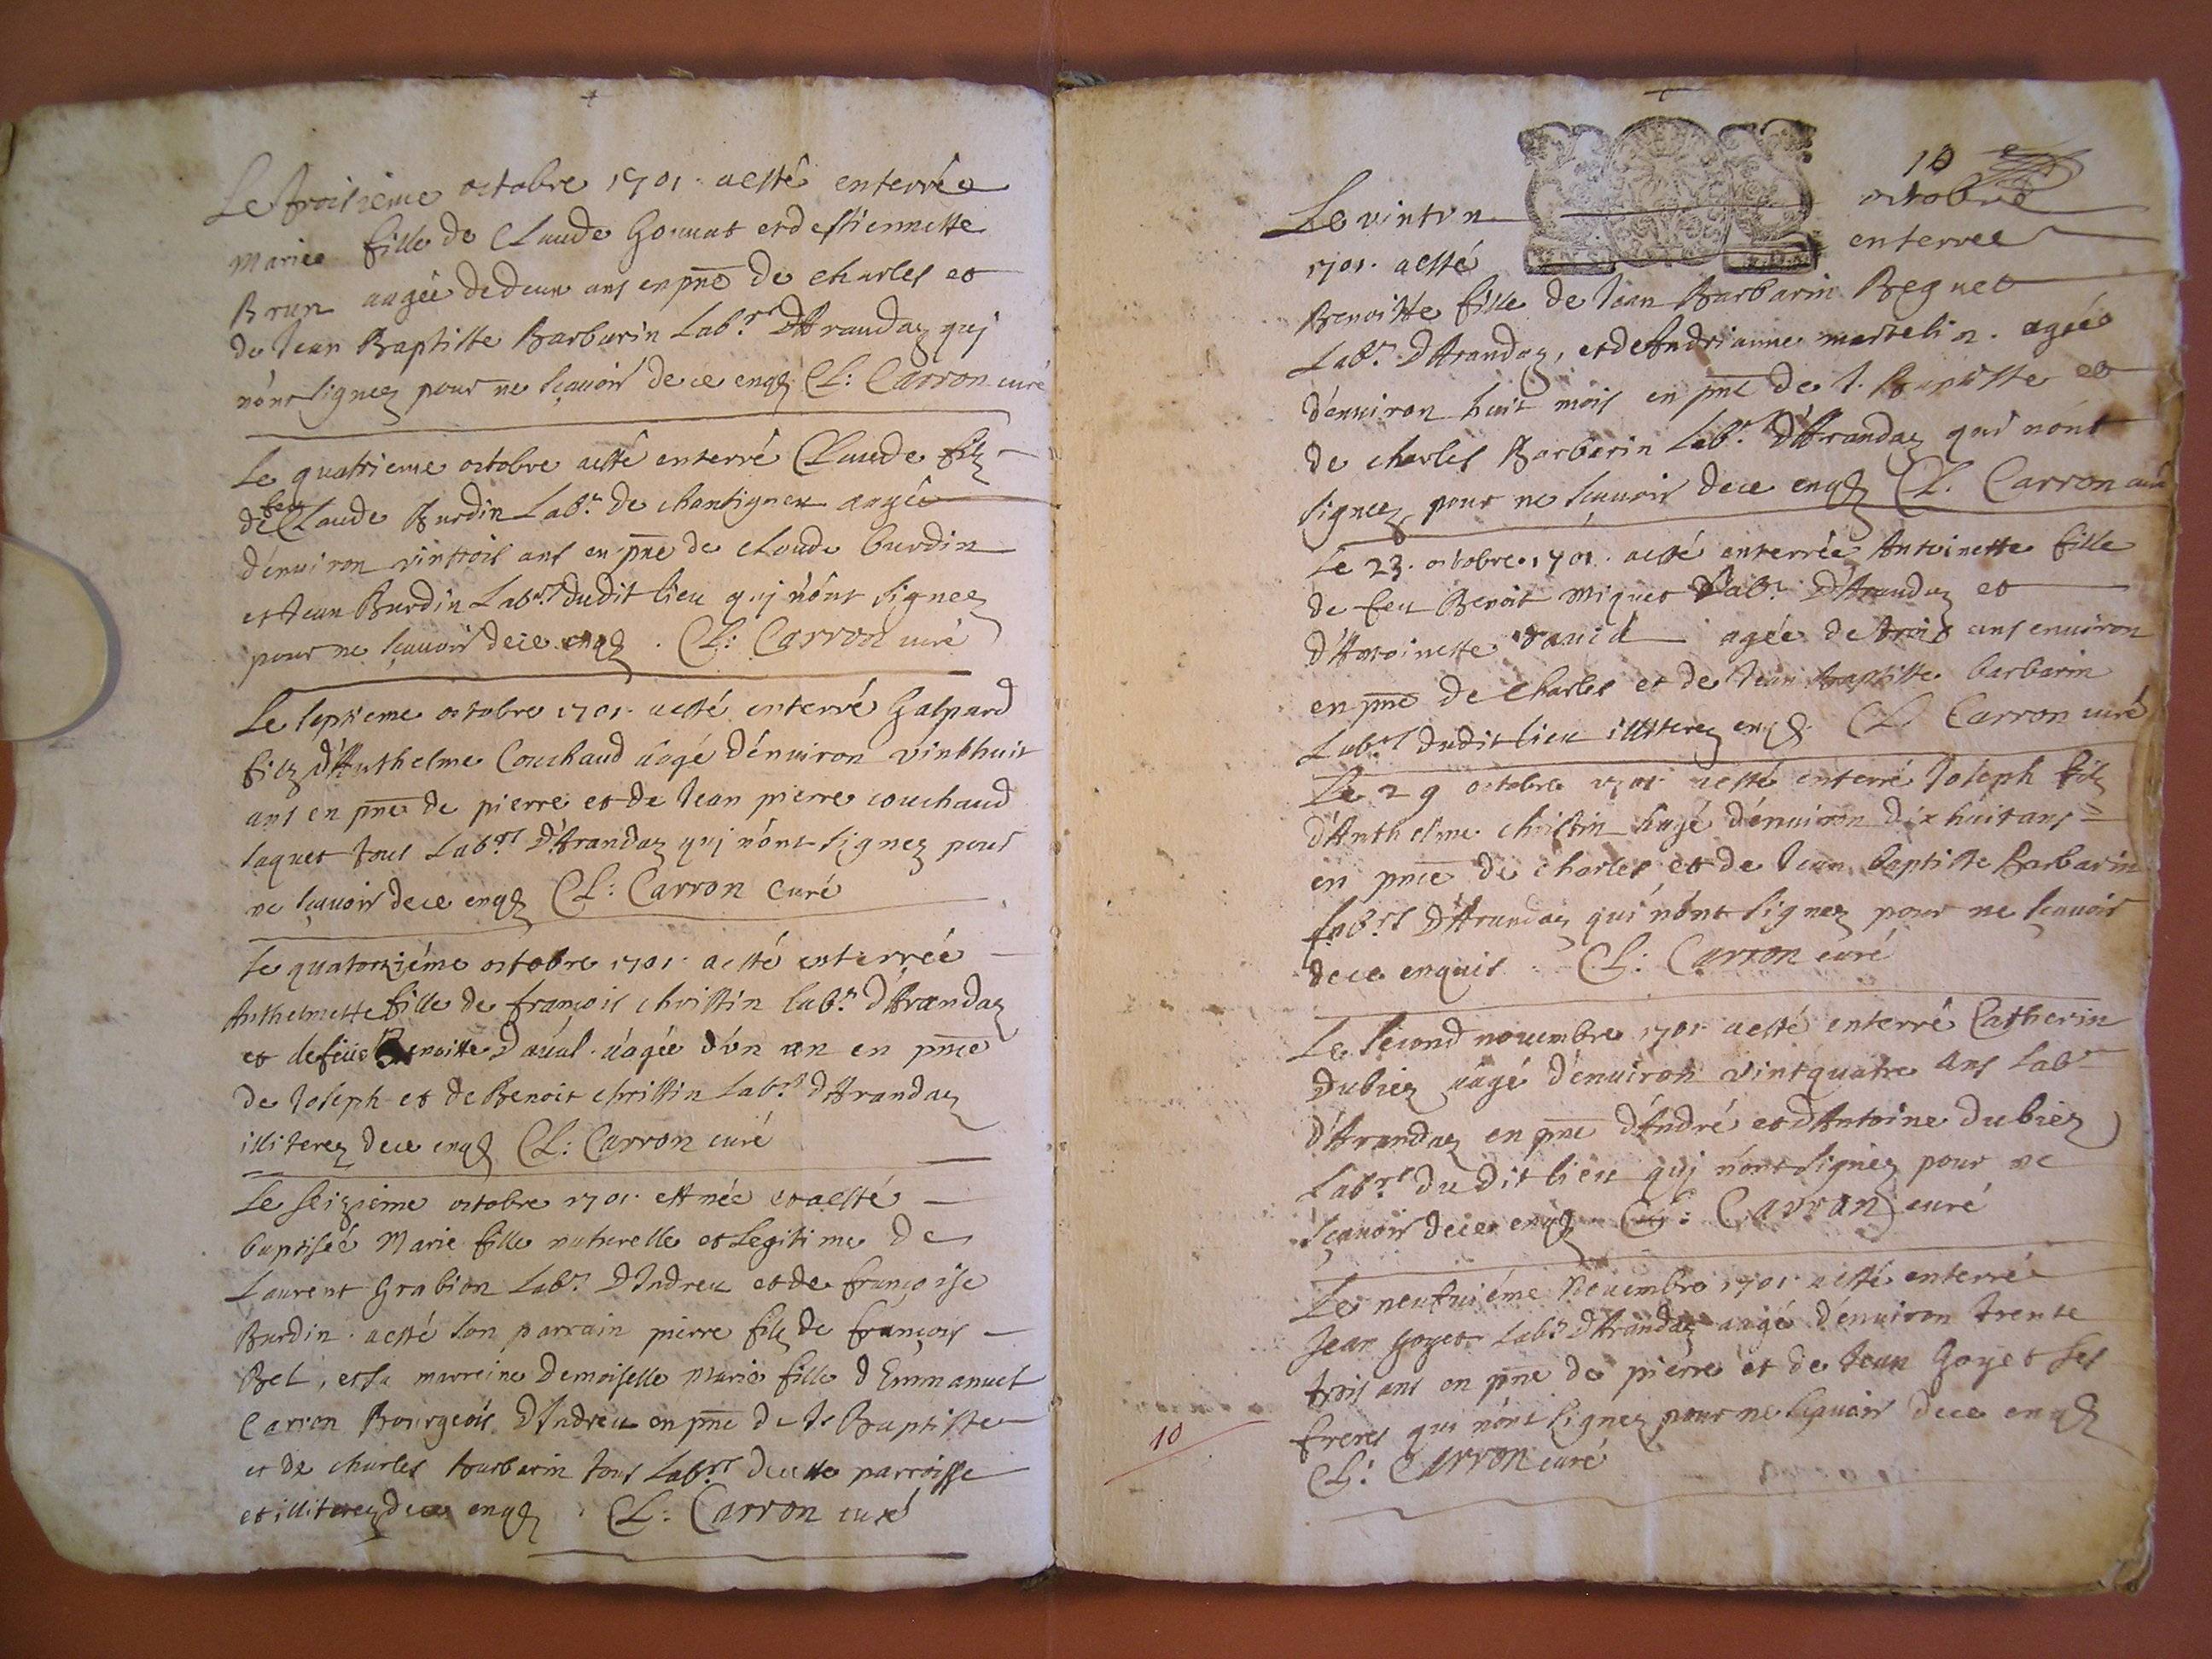 Le troisieme octobre 1701. a esté enterrée
Marie fille de Claude Gounat et d'estiennette
Brun aagée de deux ans en pñce de Charles et
de Jean Baptiste Barbarin Lab.rs D'Arandaz qui
n'ont signez pour ne sçavoir de ce enqs CL: Carron curé
Le quatrieme octobre a esté enterré Claude filz
de feu Claude Burdin Lab.r de chantigneu aagé
d'environ vintrois ans en pñce de claude burdin
et Jean Burdin Lab.rs dudit lieu qui n'ont signez
pour ne sçavoir de ce enqs. CL: Carron curé
Le septieme octobre 1701. a esté enterré Gaspard
filz d'Anthelme Couchaud aagé d'environ vinthuit
ans en pñce de pierre et de Jean pierre couchaud
Jaquet tous Lab.rs D'Arandaz qui n'ont signez pour
ne sçavoir de ce enqs CL: Carron Curé
Le quatorziéme octobre 1701. a esté enterrée
Anthelmette fille de françois christin Lab.r D'Arandaz
et de feüe Benoitte aagée d'un an en pñce
de Joseph et de Benoit christin Lab.rs D'Arandaz
illiterez de ce enqs CL: Carron curé
Le seizieme octobre 1701. est née et a esté
baptisée Marie fille naturelle et Legitime de
Laurent Grabion Lab.r D'Indreu et de françoise
Burdin. a esté son parrain pierre filz de françois
Bel, et sa marreine Demoiselle Marie fille d'Emmanuel
Carron Bourgeois D'Indreu en pñce de J. Baptiste
et de charles barbarin tous Lab.rs de cette parroisse
et illiterez de ce enqs. CL: Carron curé
10
Le vintun octobre
1701. a esté enterree
Benoitte fille de Jean Barbarin Beguet
Lab.r D'Arandaz, et de Andrianne martelin. agée
d'environ huit mois en pñce de J. Baptiste et
de charles Barbarin Lab.rs D'Arandaz qui n'ont
signez pour ne sçavoir de ce enqs CL. Carron curé
Le 23. octobre 1701. a esté enterrée Antoinette fille
de feu Benoit Miguet Lab.r D'Arandaz et
D'Antoinette agée de trois ans environ
en pñce de Charles et de Jean baptiste barbarin
Lab.rs dudit lieu illiterez enqs. CL Carron curé
Le 29 octobre 1701. a esté enterré Joseph filz
D'Anthelme christin aagé d'environ dixhuit ans
en pñce de charles et de Jean baptiste Barbarin
Lab.rs D'Arandaz qui n'ont signez pour ne sçavoir
de ce enquis. CL: Carron curé
Le second novembre 1701. a esté enterré Catherin
Dubiez aagé d'environ vintquatre ans Lab.r
d'Arandaz en pñce d'André et d'Antoine Dubiez
Lab.rs dudit lieu qui n'ont signez pour ne
sçavoir de ce enqs CL: Carron curé
Le neufviéme Novembre 1701. a esté enterré
Jean Goyet Lab.r D'Arandaz aagé d'environ trente
trois ans en pñce de pierre et de Jean Goyet ses
freres qui n'ont signez pour ne sçavoir de ce enqs
CL: Carron curé
10